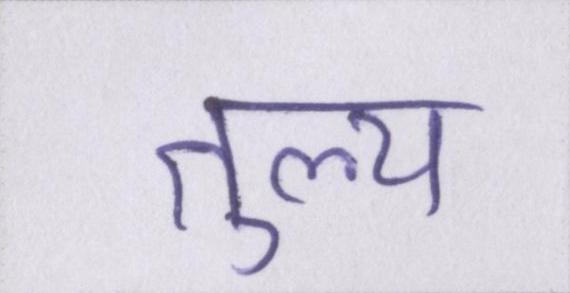 तुल्य